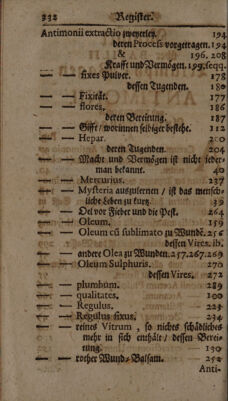 232 Register.
Antimonii extractio zweyerley. 194
deren Process vorgetragen. 194
& 196. 208
— — Krafft und Vermögen. 199. seqq.
— — fixes Pulver. 178
dessen Tugenden. 180
— — Fixität. 177
— — flores. 186
deren Bereitung. 187
— — Gifft / worinnen selbiger bestehe. 112
— — Hepar. 200
deren Tugenden. 204
— — Macht und Vermögen ist nicht jeder-
man bekannt. 40
— — Mercurius. 237
— — Mysteria auszulernen / ist das mensch-
liche Leben zu kurtz. 39
— — Oel vor Fieber und die Pest. 264
— — Oleum. 159
— — Oleum cũ sublimato zu Wundẽ. 256
dessen Vires. ib.
— — andere Olea zu Wunden. 257. 267. 269
— — Oleum Sulphuris. 270
dessen Vires. 272
— — plumbum. 289
— — qualitates. 100
— — Regulus. 223
— — Regulus fixus. 234
— — reines Vitrum, so nichts schädliches
mehr in sich enthält / dessen Berei-
tung. 130
— — rother Wund-Balsam. 252
Anti-